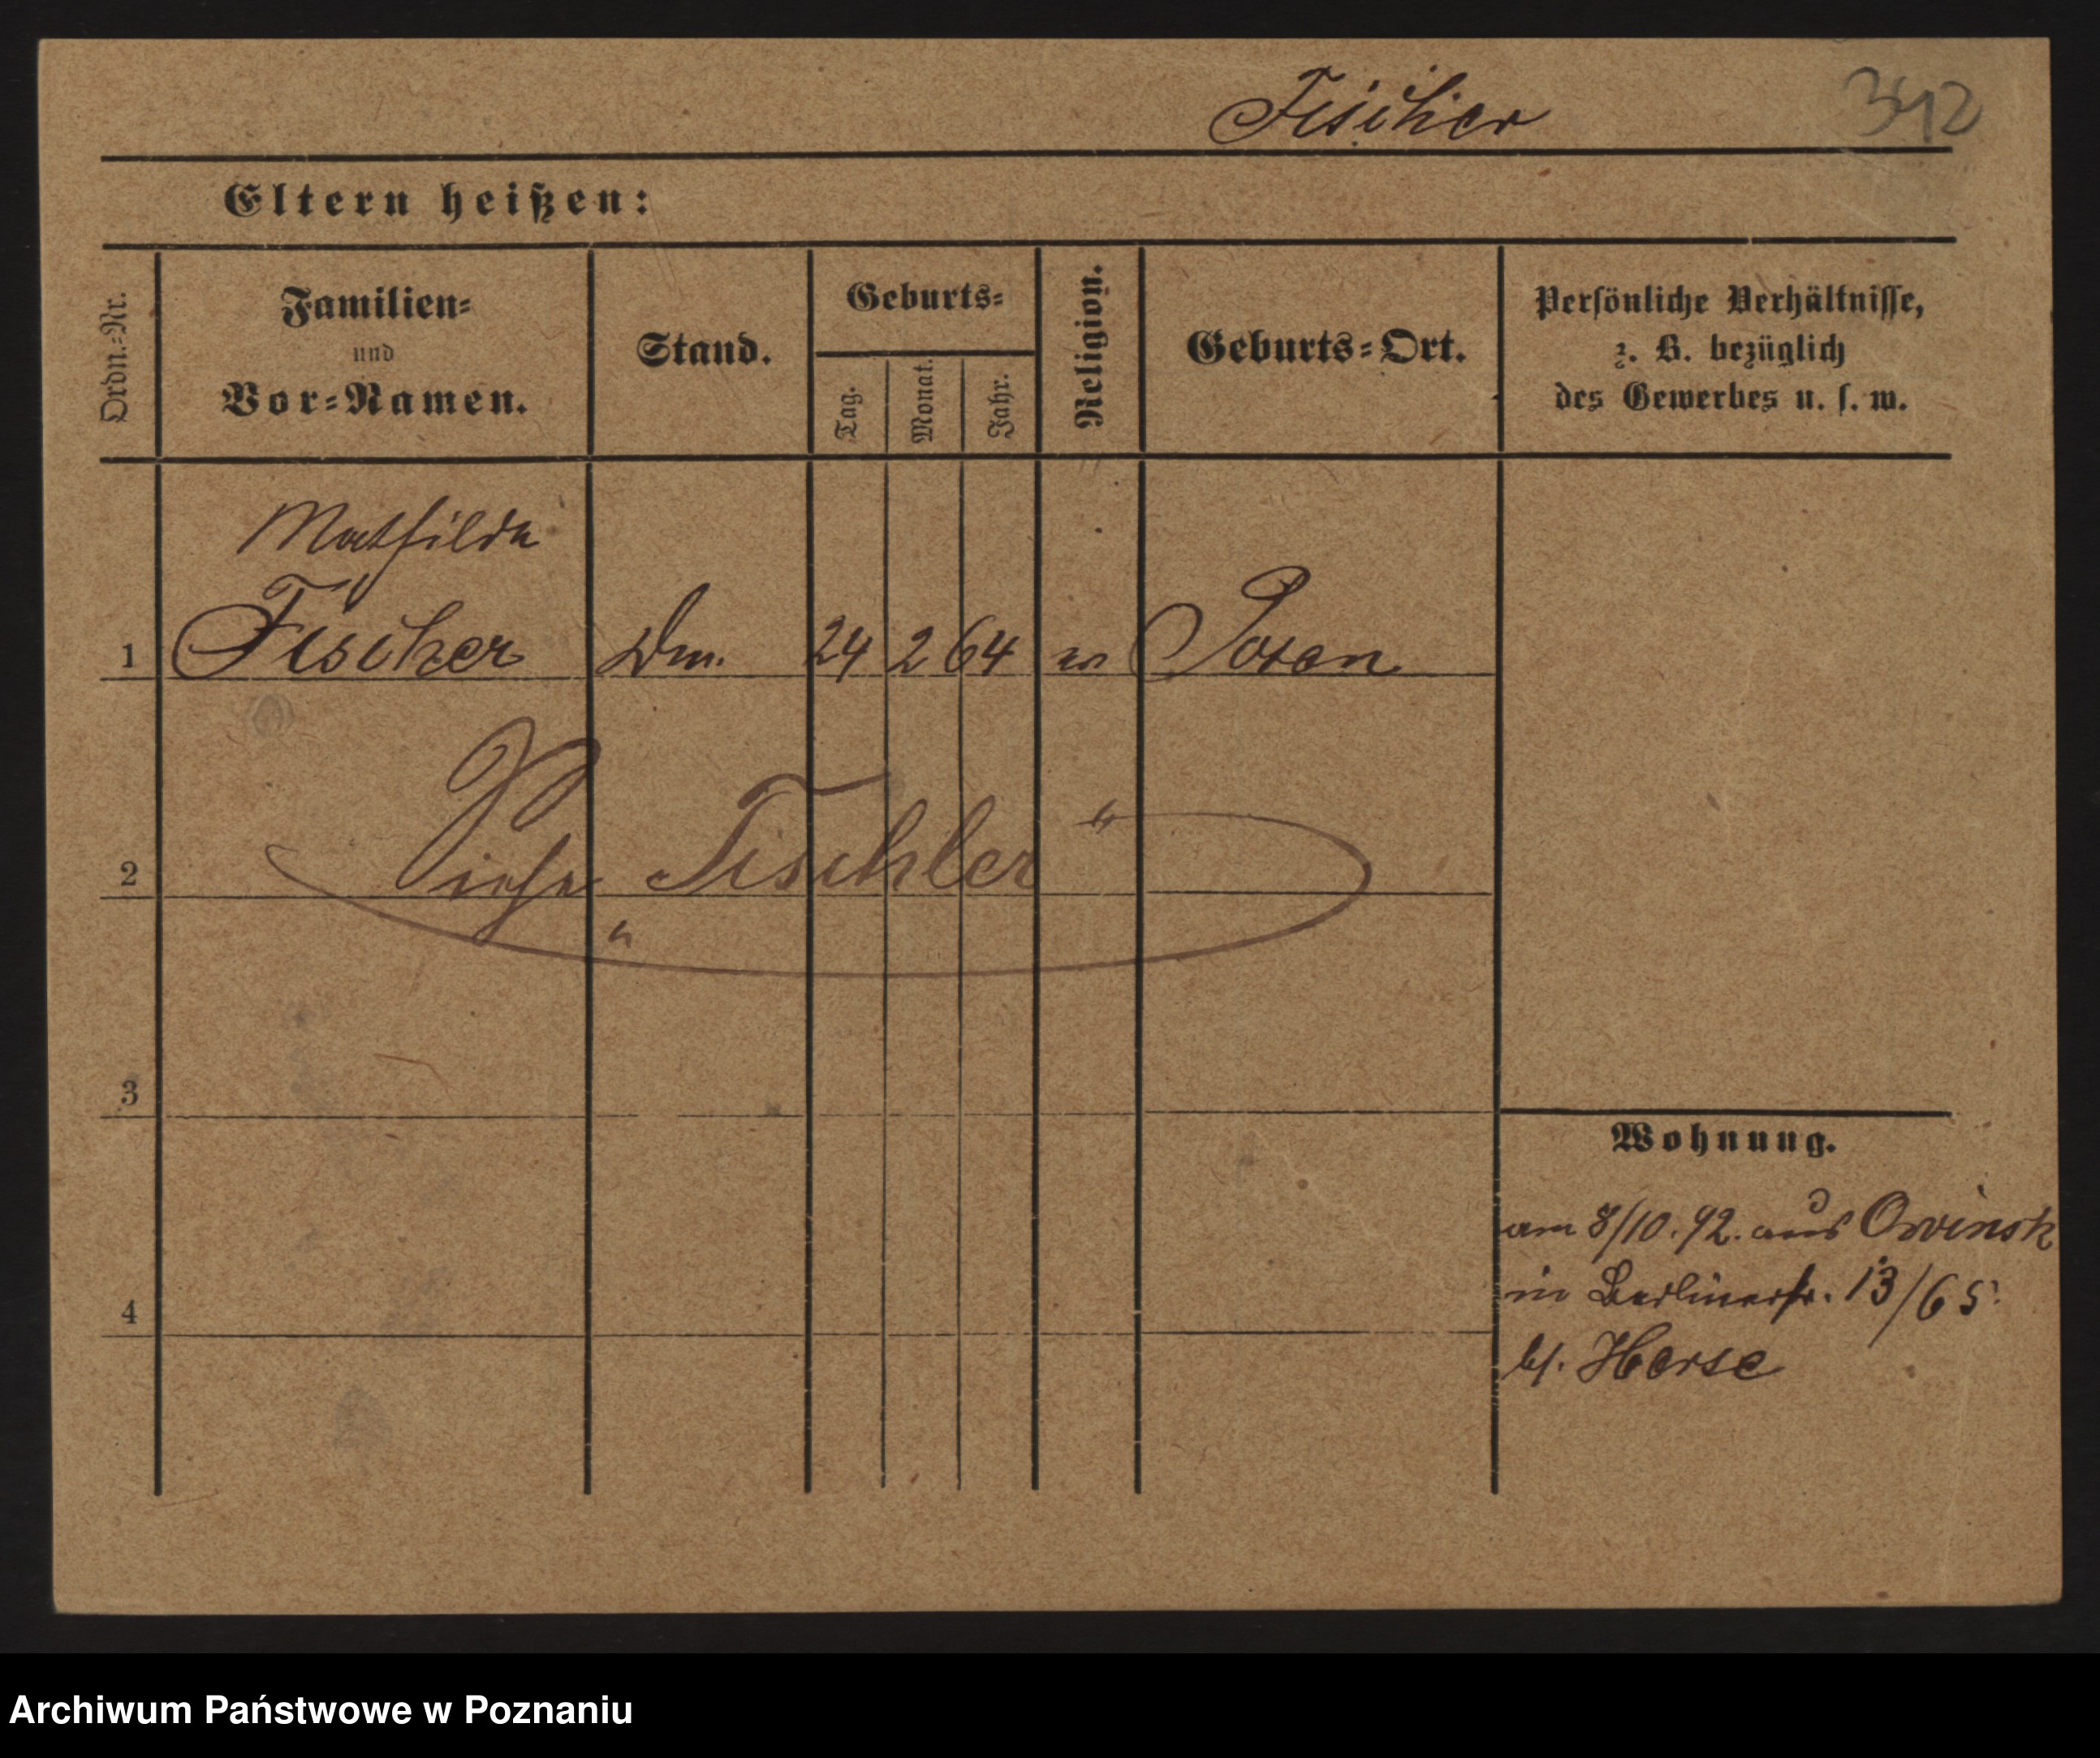 Fischer 342
Eltern heißen:
Ordn.-Nr.
Familien-
und
Vor-Namen.
Stand.
Geburts-
Tag.
Monat.
Jahr.
Religion.
Geburts-Ort.
Persönliche Verhältnisse,
z. B. bezüglich
des Gewerbes u. s. w.
Mathilde
1 Fischer 24 2 64 Posen
2 Siehe „Tischler“
3
Wohnung.
am 8/10. 92. aus Owinsk
in Berlinerstr. 13/65.
4
b/. Herse
Archiwum Państwowe w Poznaniu